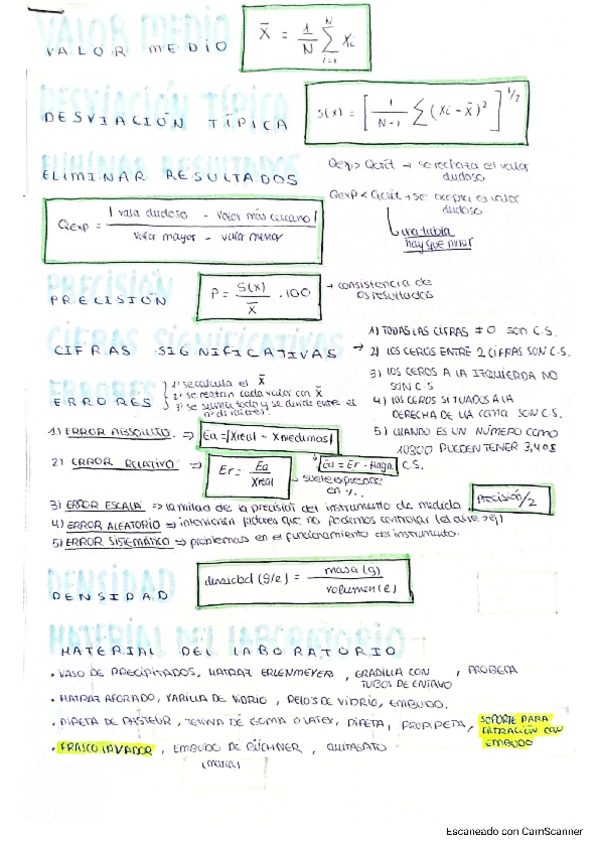 VALOR MEDIO
X̄ = 1/N ∑ᵢ₌₁ᴺ Xi
DESVIACIÓN TÍPICA
S(x) = [1/N-1 ∑(Xi - x̄)²]^1/2
ELIMINAR RESULTADOS
Qexp > Qcrit → se rechaza el valor
dudoso
Qexp < Qcrit → se acepta el valor
dudoso
una tabla
hay que mirar
Qexp = |valor dudoso - valor más cercano| / valor mayor - valor menor
PRECISIÓN
P = S(x)/X̄ · 100
→ consistencia de
os resultados
CIFRAS SIGNIFICATIVAS
→
1) TODAS LAS CIFRAS ≠ 0 SON C.S.
2) LOS CEROS ENTRE 2 CIFRAS SON C.S.
3) LOS CEROS A LA IZQUIERDA NO
SON C.S
4) LOS CEROS SITUADOS A LA
DERECHA DE LA COMA SON C.S.
5) CUANDO ES UN NÚMERO COMO
10300 PUEDEN TENER 3, 4 o 5
C.S.
ERRORES
1º se calcula el X̄
2º se restan cada valor con X̄
3º se suma todo y se divide entre el
nº de valores
1) ERROR ABSOLUTO ⇒ Ea = |Xreal - Xmedimos|
2) ERROR RELATIVO ⇒ Er = Ea/Xreal
Ea = Er ·
suele expresarse
en %.
3) ERROR ESCALA ⇒ la mitad de la precisión del instrumento de medida
Precisión/2
4) ERROR ALEATORIO ⇒ intervienen factores que no podemos controlar (el aire → ej)
5) ERROR SISTEMÁTICO ⇒ problemas en el funcionamiento del instrumento.
DENSIDAD
densidad (g/l) = masa (g) / volumen (l)
MATERIAL DEL LABORATORIO
• VASO DE PRECIPITADOS, MATRAZ ERLENMEYER, GRADILLA CON
TUBOS DE ENSAYO
, PROBETA
• MATRAZ AFORADO, VARILLA DE VIDRIO, DE VIDRIO, EMBUDO.
• PIPETA DE PASTEUR, TETINA DE GOMA O LATEX, PIPETA, PROPIPETA, SOPORTE PARA
FILTRACIÓN CON
EMBUDO
• FRASCO LAVADOR, EMBUDO DE BÜCHNER, QUITASATO
Escaneado con CamScanner